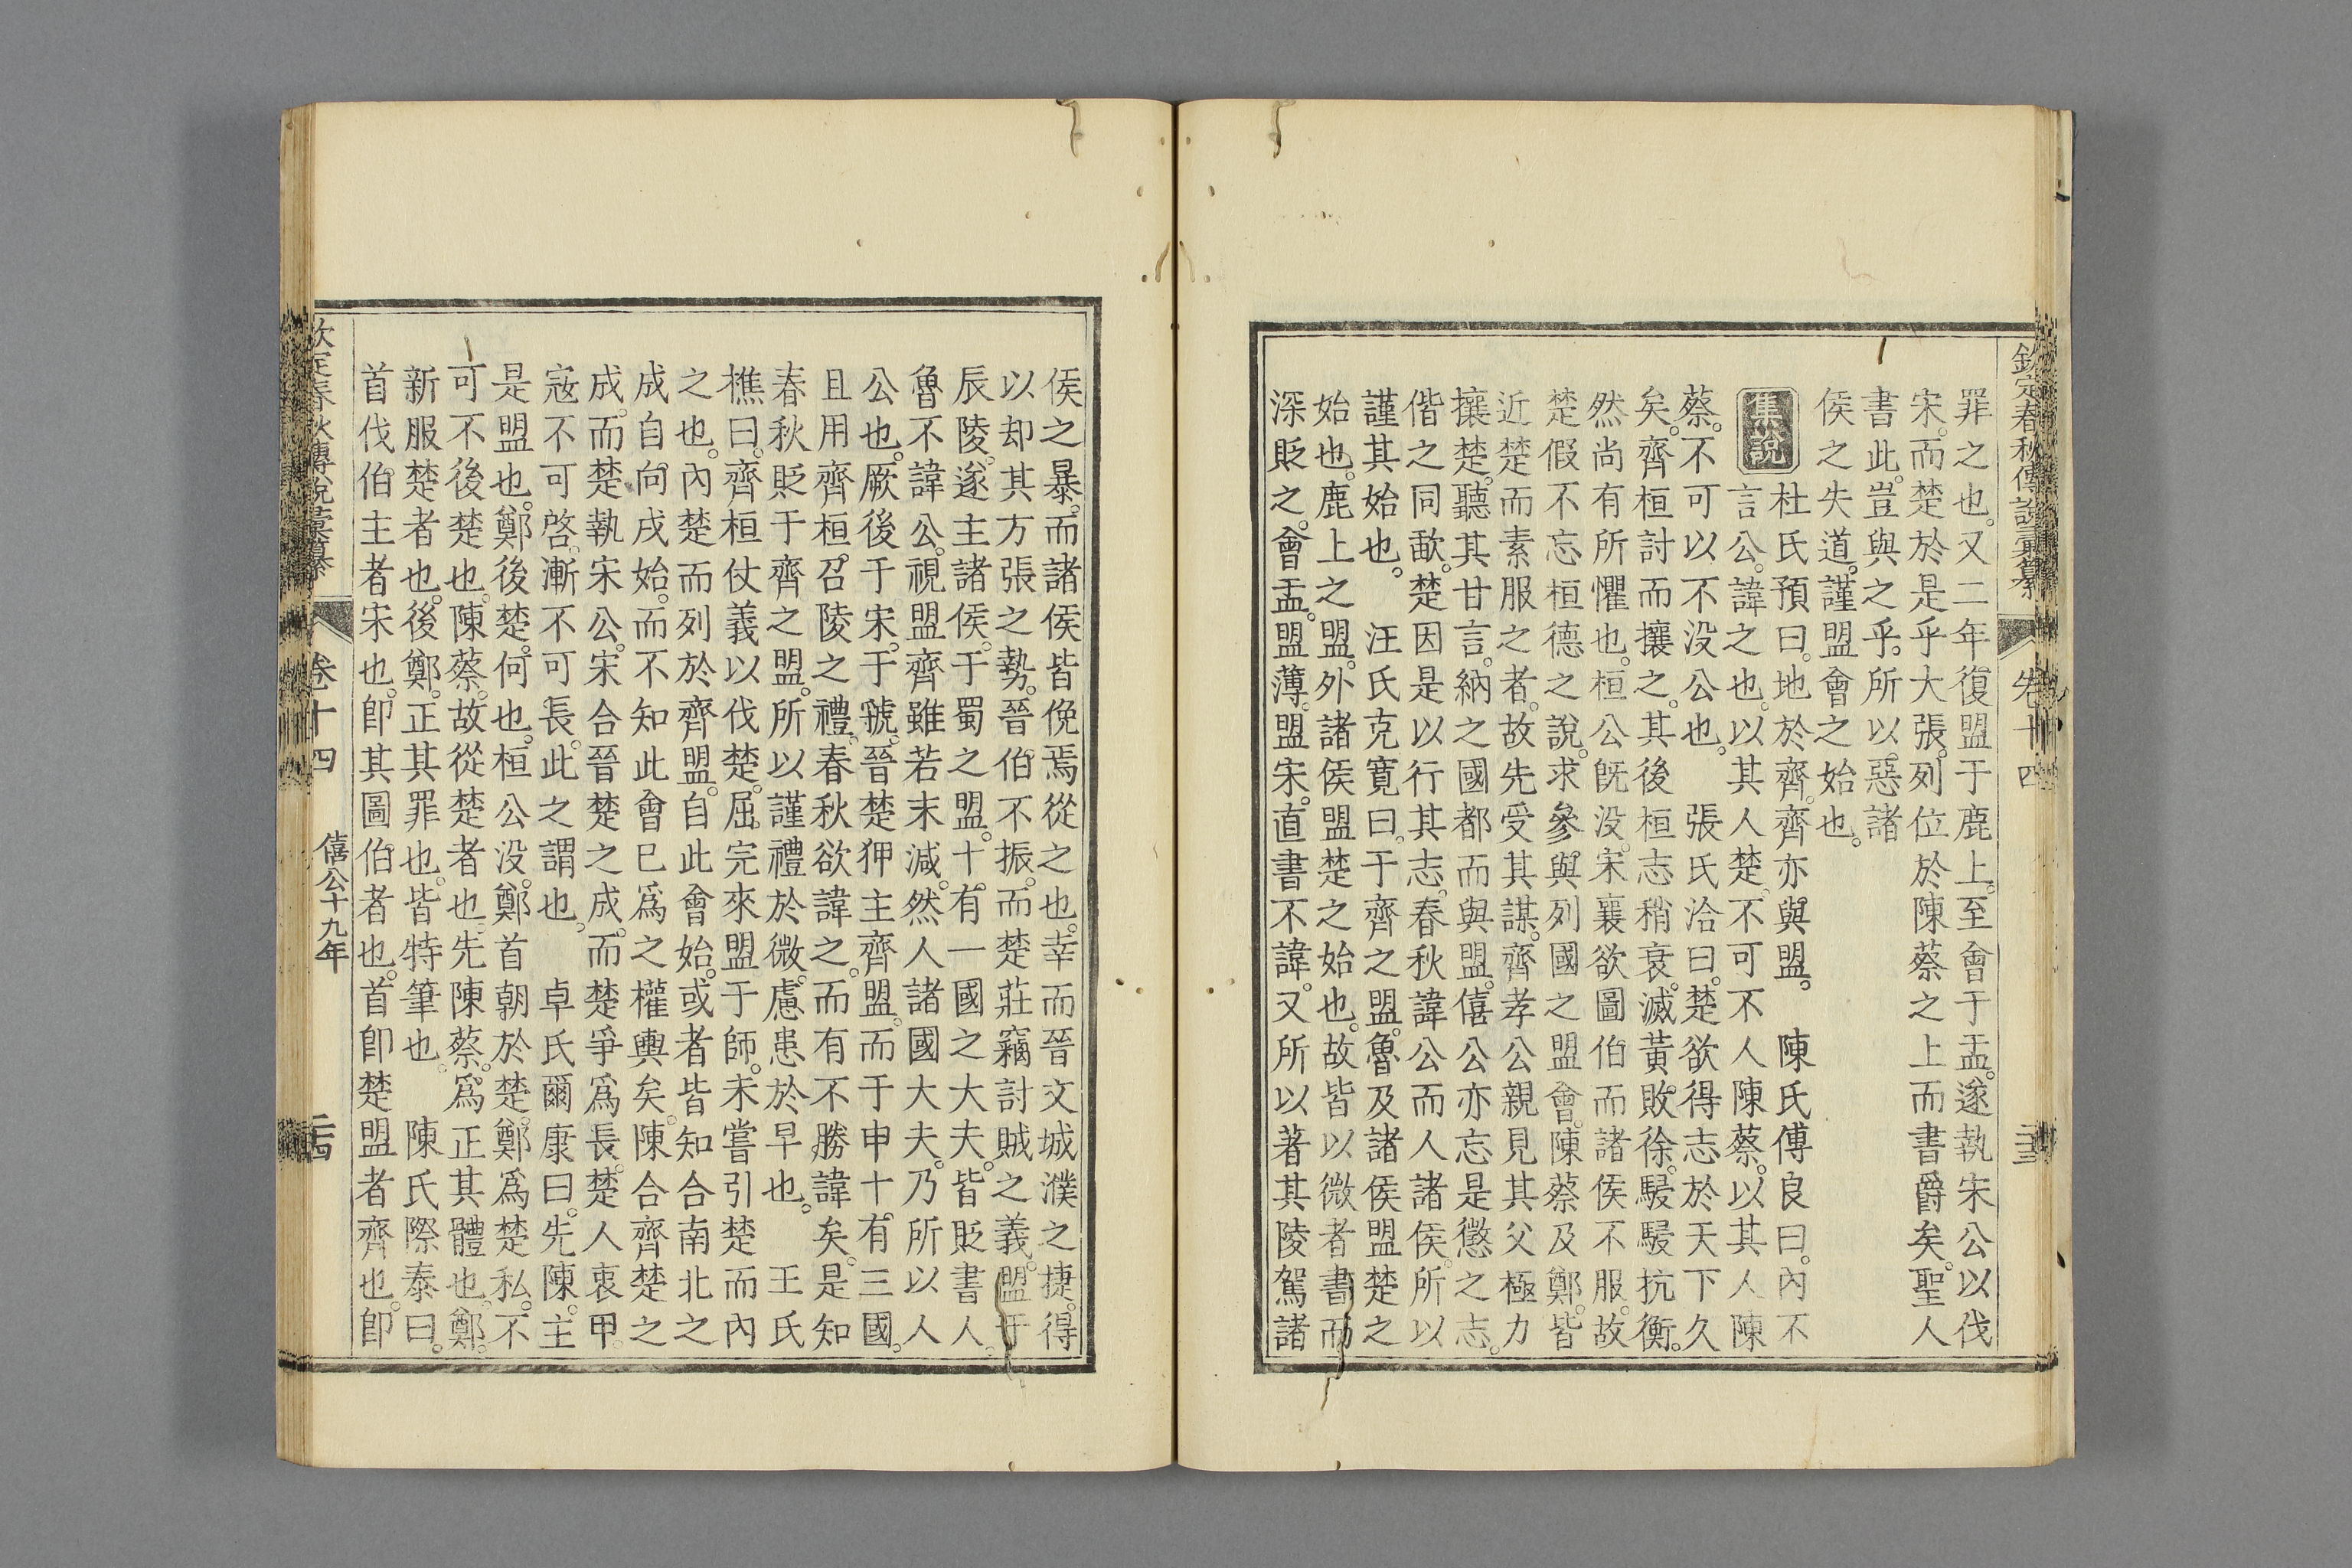 欽定春秋傳說彙纂 卷十四 二十三
罪之也。又二年復盟于鹿上。至會于盂。遂執宋公以伐
宋。而楚於是乎大張。列位於陳蔡之上而書爵矣。聖人
書此。豈與之乎。所以惡諸
侯之失道。謹盟會之始也。
集說 杜氏預曰。地於齊。齊亦與盟。 陳氏傅良曰。內不
言公。諱之也。以其人楚。不可不人陳蔡。以其人陳
蔡。不可以不没公也。 張氏洽曰。楚欲得志於天下久
矣。齊桓討而攘之。其後桓志稍衰。滅黃。敗徐。駸駸抗衡。
然尚有所懼也。桓公旣没。宋襄欲圖伯而諸侯不服。故
楚假不忘桓德之說。求參與列國之盟會。陳蔡及鄭。皆
近楚而素服之者。故先受其謀。齊孝公親見其父極力
攘楚。聽其甘言。納之國都而與盟。僖公亦忘是懲之志。
偕之同歃。楚因是以行其志。春秋諱公而人諸侯。所以
謹其始也。 汪氏克寬曰。于齊之盟。魯及諸侯盟楚之
始也。鹿上之盟。外諸侯盟楚之始也。故皆以微者書而
深貶之。會盂。盟薄。盟宋。直書不諱。又所以著其陵駕諸
侯之暴。而諸侯皆俛焉從之也。幸而晉文城濮之捷。得
以却其方張之勢。晉伯不振。而楚莊竊討賊之義。盟于
辰陵。遂主諸侯。于蜀之盟。十有一國之大夫。皆貶書人。
魯不諱公。視盟齊雖若末減。然人諸國大夫。乃所以人
公也。厥後于宋。于虢。晉楚狎主齊盟。而于申十有三國。
且用齊桓召陵之禮。春秋欲諱之。而有不勝諱矣。是知
春秋貶于齊之盟。所以謹禮於微。慮患於早也。 王氏
樵曰。齊桓仗義以伐楚。屈完來盟于師。未嘗引楚而內
之也。內楚而列於齊盟。自此會始。或者皆知合南北之
成自向戌始。而不知此會已爲之權輿矣。陳合齊楚之
成。而楚執宋公。宋合晉楚之成。而楚爭爲長。楚人衷甲。
寇不可啓。漸不可長。此之謂也。 卓氏爾康曰。先陳。主
是盟也。鄭後楚。何也。桓公没。鄭首朝於楚。鄭爲楚私。不
可不後楚也。陳蔡。故從楚者也。先陳蔡。爲正其體也。鄭。
新服楚者也。後鄭。正其罪也。皆特筆也。 陳氏際泰曰。
首伐伯主者宋也。卽其圖伯者也。首卽楚盟者齊也。卽
欽定春秋傳說彙纂 卷十四 僖公十九年 二十四